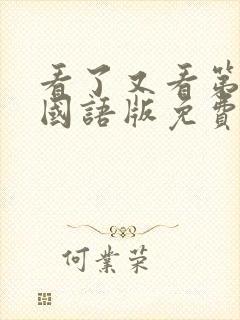 看了又看第
國語版免費
何業荣